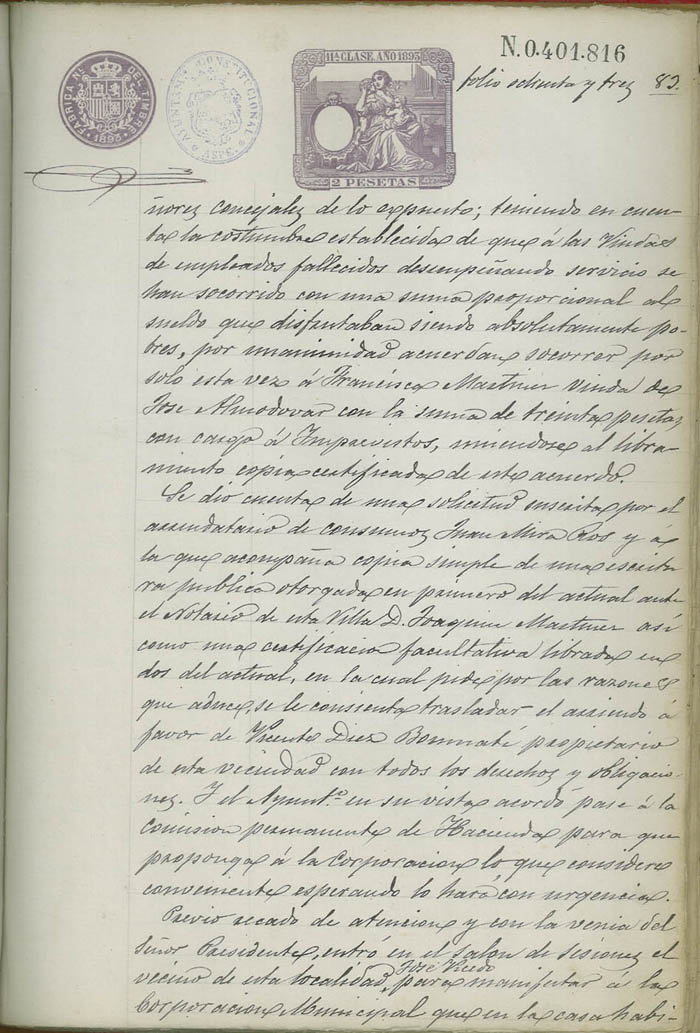 N.0.401.816
11ª CLASE. AÑO 1893
2 PESETAS
FABRICA NL. DEL TIMBRE
1893
AYUNTAMIENTO CONSTITUCIONAL
folio ochenta y tres 83.
ñores concejales de lo expuesto; teniendo en cuen-
ta la costumbre establecida de que á las Viudas
de empleados fallecidos desempeñando servicio se
han socorrido con una suma proporcional al
sueldo que disfrutaban siendo absolutamente po-
bres, por unanimidad acuerdan socorrer por
solo esta vez á Francisca Martinez viuda de
Jose Almodovar con la suma de treinta pesetas
con cargo á Imprevistos, uniendose al libra-
miento copia certificada de este acuerdo.
Se dio cuenta de una solicitud suscrita por el
arrendatario de consumos Juan Mira Ros y á
la que acompaña copia simple de una escritu
ra publica otorgada en primero del actual ante
el Notario de esta Villa D. Joaquin Martinez asi
como una certificacion facultativa librada en
dos del actual, en la cual pide por las razones
que aduce, se le consienta trasladar el arriendo á
favor de Vicente Diez Bonmatí propietario
de esta vecindad con todos los derechos y obligacio-
nes. Y el Ayuntº en su vista acordó pase á la
Comision permanente de Hacienda para que
proponga á la Corporacion lo que considere
conveniente esperando lo hará con urgencia.
Previo recado de atencion y con la venia del
Señor Presidente, entró en el salon de sesiones el
José Vicedo
vecino de esta localidad, para manifestar á la
Corporacion Municipal que en la casa habi-